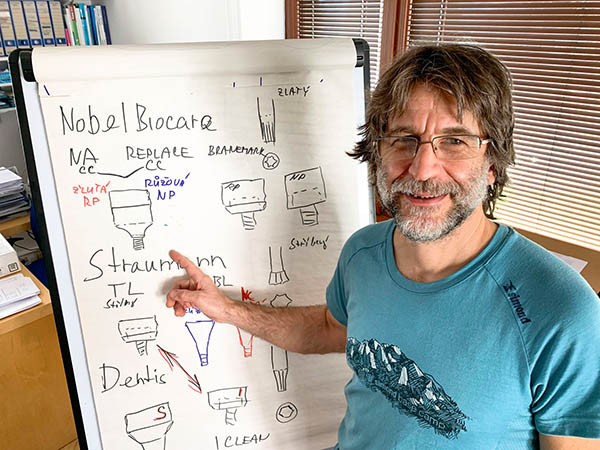 ZLATÝ
Nobel Biocare
NA REPLACE BRANEMARK
CC CC
ŽLUTÁ RŮŽOVÁ
RP NP
RP NP
Straumann Stříbrný
TL BL
NC
Dentis
S I
I CLEAN